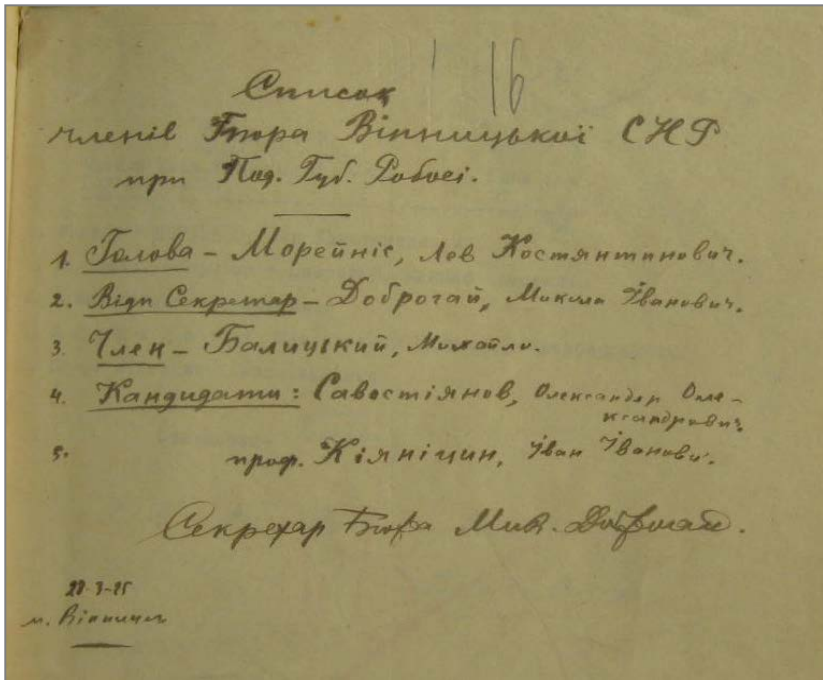 16
Список
членів Бюра Вінницької СНР
при Под. Губ. Робосі.
1. Голова – Морейніс, Лев Костянтинович.
2. Відп Секретар – Доброгай, Микола Іванович.
3. Член – Балицький, Михайло.
4. Кандидати: Савостіянов, Олександер Оле-
ксандрович.
5. проф. Кіяніцин, Іван Іванович.
Секретар Бюра Мик. Доброгай.
м. Вінниця